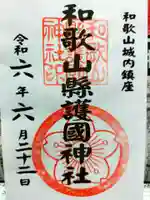 和歌山城内鎮座
和歌山縣護國神社
令和六年六月二十二日